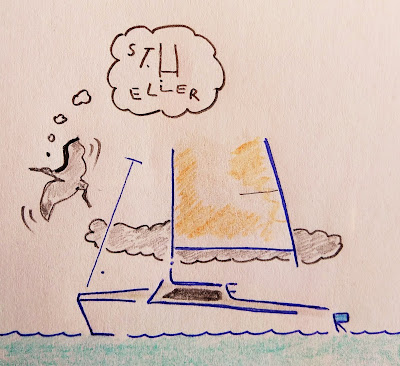 ST. H
ELLiER
E